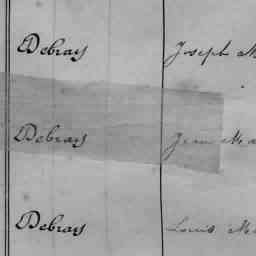 Debray Joseph M
Debray Jean Ma
Debray Louis Ma